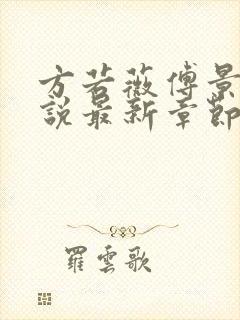 方若薇傅景
說最新章節
羅雲歌